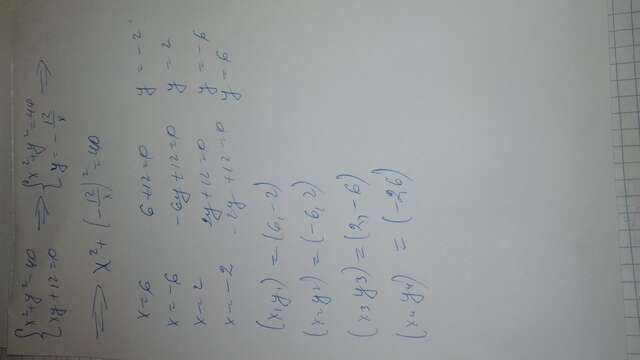 {x²+y²=40 ⇒ {x²+y²=40 ⇒
{xy+12=0 {y=-12/x
⇒ x²+(-12/x)²=40
x=6 6+12=0 y=-2
x=-6 -6y+12=0 y=2
x=2 2y+12=0 y=-6
x=-2 -2y+12=0 y=6
(x1y1)=(6,-2)
(x2y2)=(-6,2)
(x3y3)=(2,-6)
(x4y4)=(-2,6)